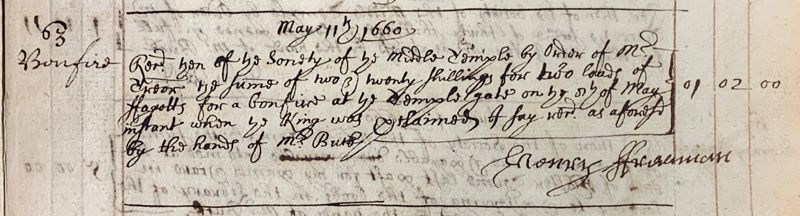 May 11th 1660
63
Bonfire
Recd. then of the Sociity of the Middle Temple by Order of Mr.
Treõr the sume of two & twenty shillings for two loads of
ffagotts for a bonfire at the Temple gate on the 8th of May
instant when the King was pclaimed I say recd. as aforesd
by the hands of Mr. Butes
01 02 00
Henry ffreeman